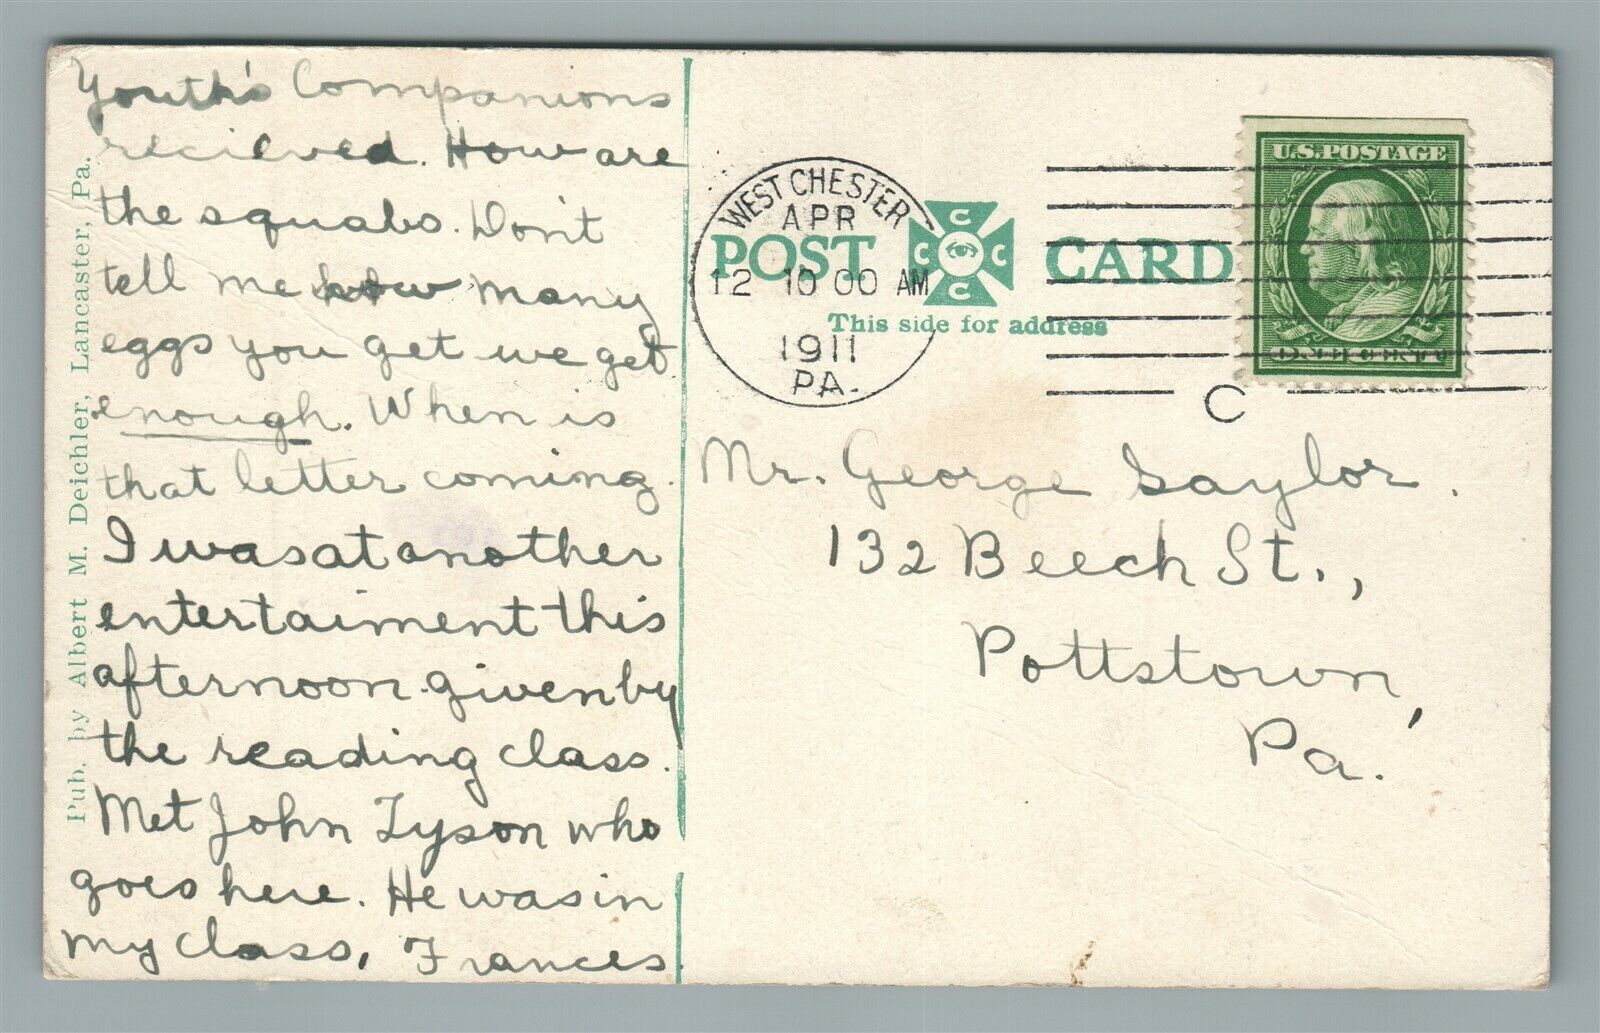 Youth's Companions
recieved. How are
the squabs. Don't
tell me how many
eggs you get we get
enough. When is
that letter coming.
I was at another
entertaiment this
afternoon given by
the reading class.
Met John Tyson who
goes here. He was in
my class, Frances
Pub. by Albert M. Deichler, Lancaster, Pa.
WEST CHESTER
APR
12 10 00 AM
1911
PA.
POST CARD
C C C C
This side for address
U.S. POSTAGE
ONE CENT
C
Mr. George Saylor.
132 Beech St.,
Pottstown,
Pa.